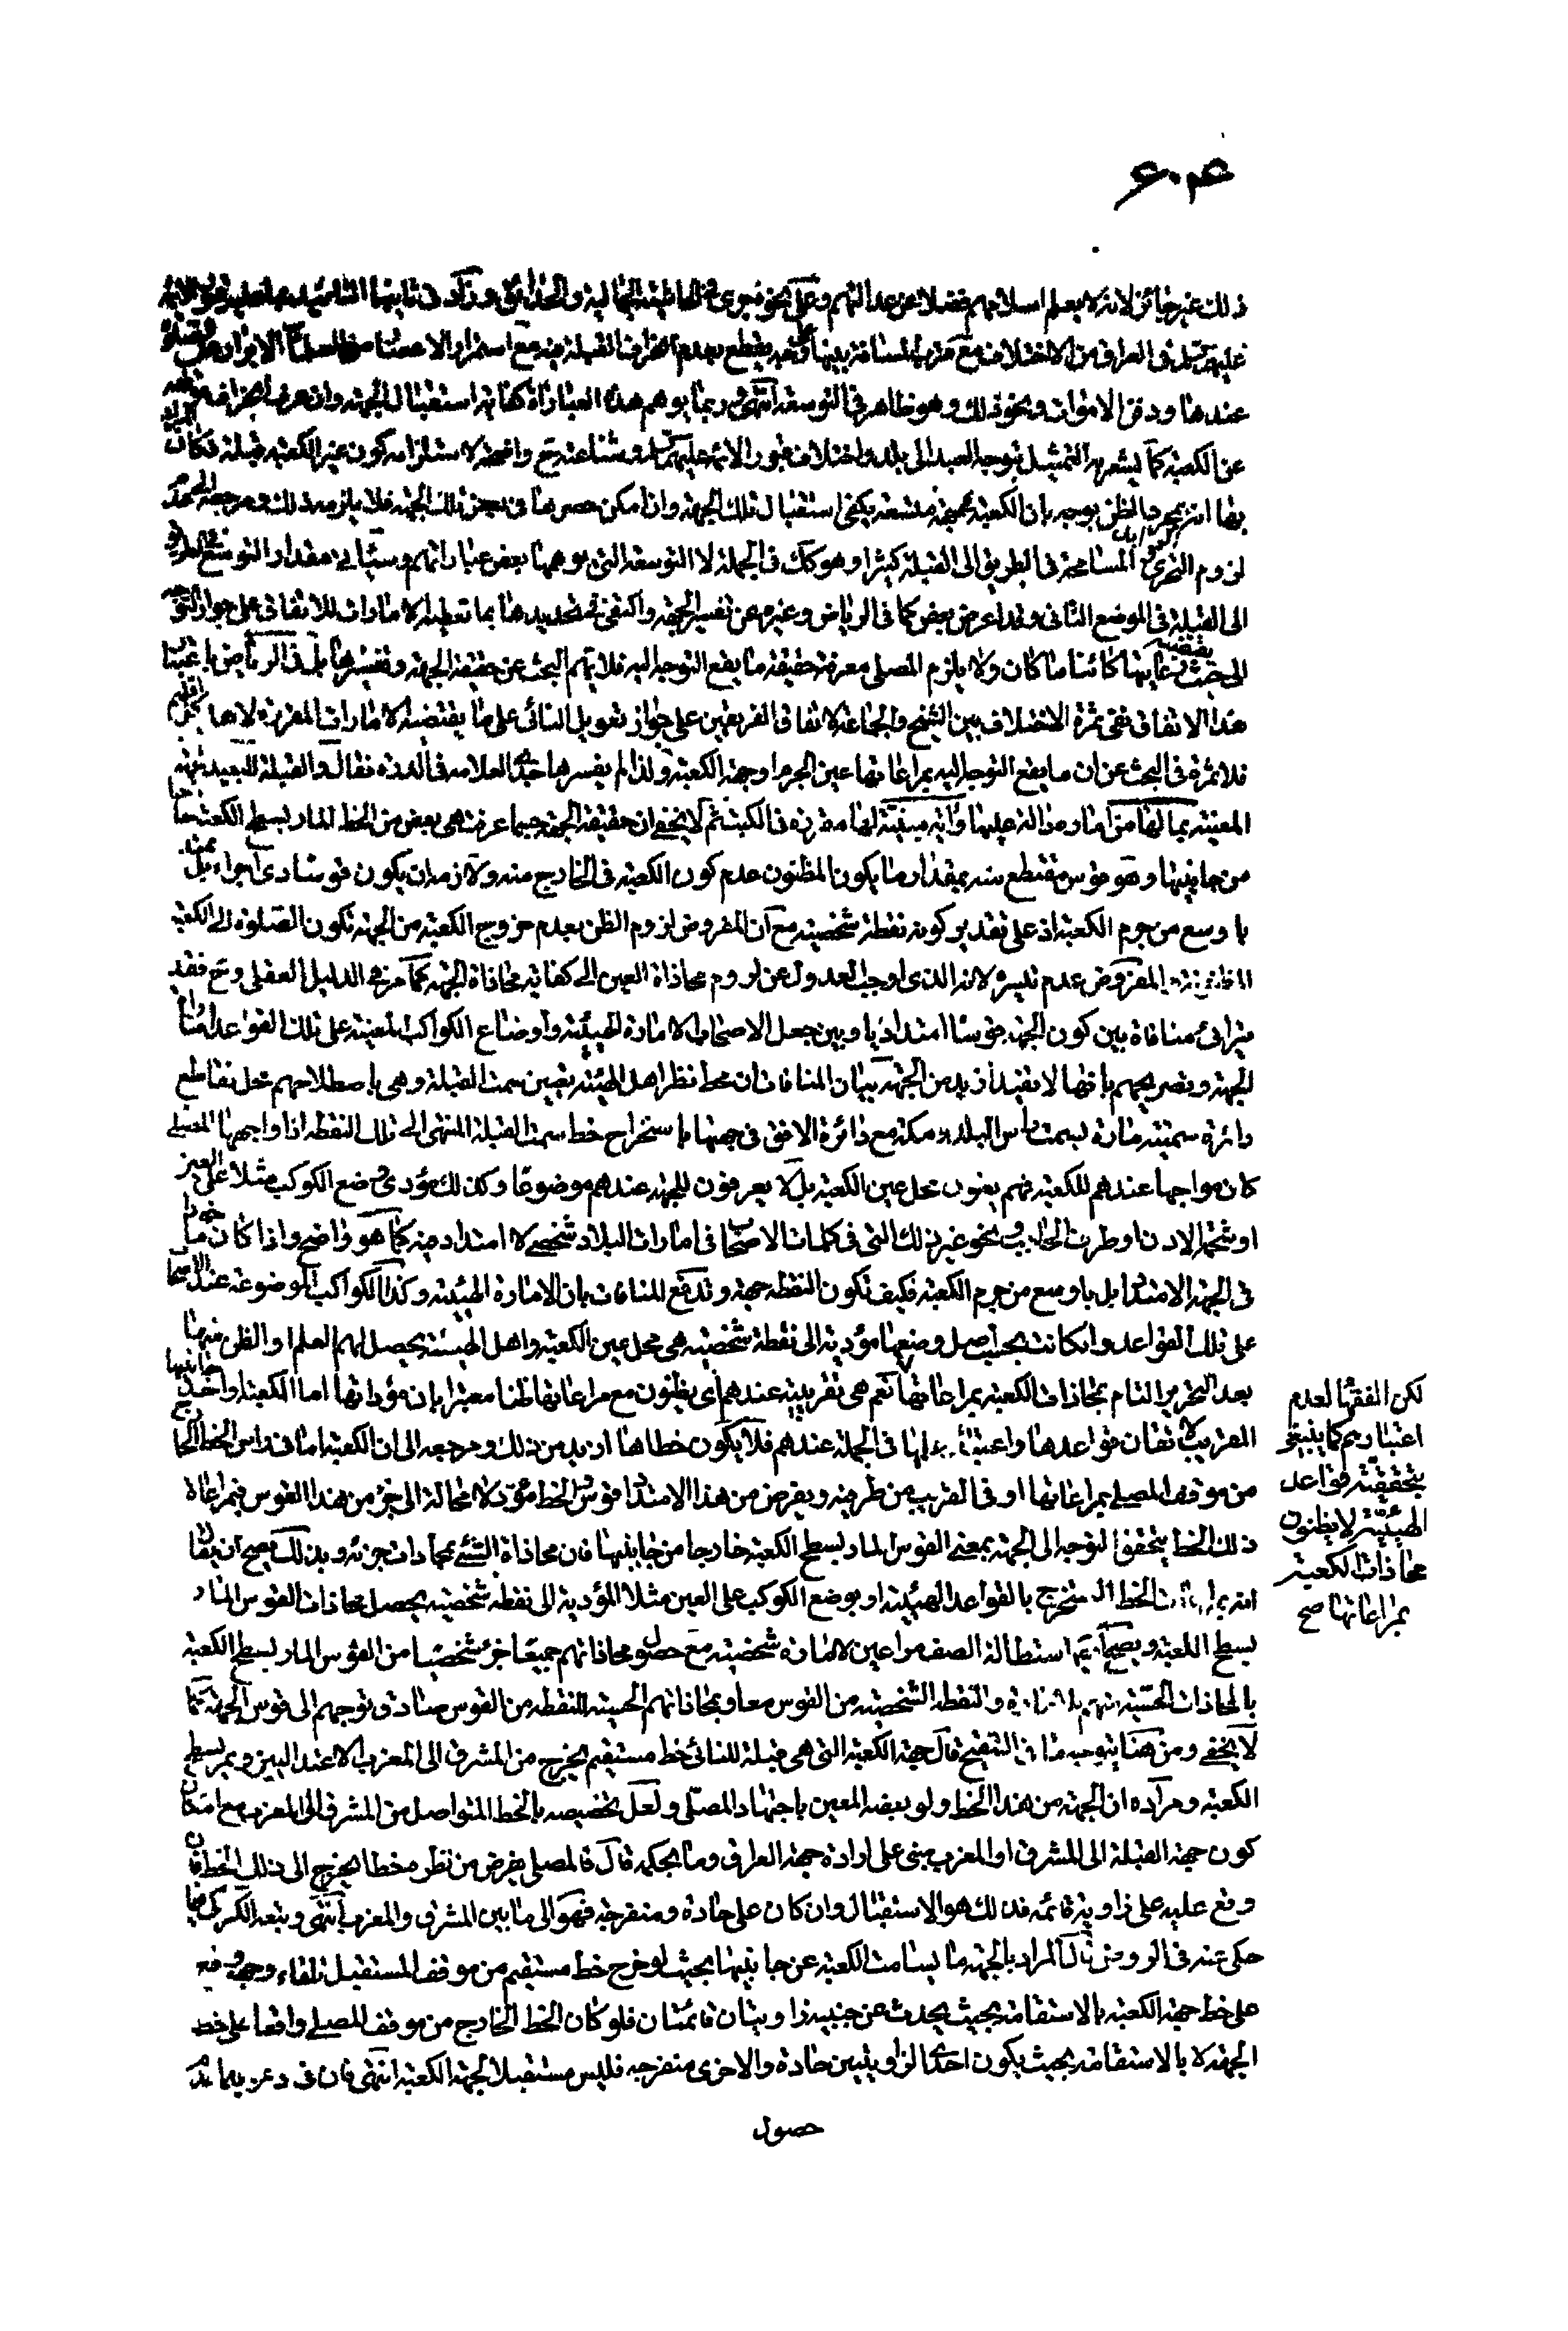 ذلك غير جائز لانه لا يعلم اسلامهم فضلا عن عدالتهم وعلى نحو فحوى في الجمالية والحدائق وزاد في
عليهم في العراق من الاختلاف مع قرب المسافة بينها يقطع بعدم انحراف القبلة فيه مع استمرار الاعصار
عندها ودفن الاموات ونحو ذلك وهو ظاهر في التوسعة انتهى وربما يوهم هذه العبارات كفاية استقبال الجهة وان عرف انحرافه
عن الكعبة كما يشعر به التمثيل بتوجه العبد الى بلد واختلاف قبور الائمة عليهم السلام وشناعته ح واضحة لاستلزامه كون غير الكعبة قبلة فكان
بها انه بمجرد الظن بوجه بان الكعبة جهة متسعة يكفي استقبال تلك الجهة وان امكن حصرها في بعض تلك الجهة فلا يلزم ذلك ومرجعه الى عدم
لزوم التحري المسامحة في الطريق الى القبلة كثيرا وهو كك في الجملة لا التوسعة التي يوهمها بعض عباراتهم وسياتي مقدار التوسعة في الطريق
الى القبلة في الموضع الثاني وقد اعرض بعض كما في الرياض وغيره عن تفسير الجهة واكتفى في تحديدها بما تعطيه الامارات للاتفاق على جواز التوجه
الى حيث يقتضيه رعايتها كائنا ما كان ولا يلزم المصلي معرفة حقيقة ما يقع التوجه اليه فلا يهم البحث عن حقيقة الجهة وتفسيرها بل في الرياض
هذا الاتفاق نفى ثمرة الاختلاف بين الشيخ والجماعة لاتفاق الفريقين على جواز تعويل النائي على ما يقتضيه الامارات المقررة لاهل كل اقليم
فلا ثمرة في البحث عن ان ما يقع التوجه اليه بمراعاتها عين الحرم او جهة الكعبة ولذا لم يفسرها جدي العلامة في الدرة فقال والقبلة للبعيد جهة
المعينة بما لها من امارة دالة عليها وآية مبينة لها مقررة في الكتب ثم لا يخفى ان حقيقة الجهة حيما عرفت هي بعض من الخط المار بسطح الكعبة خارجا
من جانبيها وهو قوس مقتطع منه بمقدار ما يكون المظنون عدم كون الكعبة في الخارج منه ولا زمه ان يكون قوسا ذي اجزاء بل ممتد
باوسع من جرم الكعبة اذ على تقدير كونه نقطة شخصية مع ان المفروض لزوم الظن بعدم خروج الكعبة من الجهة تكون الصلوة الى الكعبة
المفروض عدم تيسره لانه الذي اوجب العدول عن لزوم محاذاة العين الى كفاية محاذاة الجهة كما مر في الدليل العقلي وح فقد
يترائ منافاة بين كون الجهة قوسا امتداديا وبين جعل الاصحاب الامارة الهيئية واوضاع الكواكب المعينة على تلك القواعد امارة
الجهة وتصريحهم بانها لا تفيد ازيد من الجهة بيان المنافاة ان محط نظر اهل الهيئة تعيين سمت القبلة وهي باصطلاحهم محل تقاطع
دائرة سمتية مارة بسمت راس البلد ومكة مع دائرة الافق في جهتها باستخراج خط سمت القبلة المنتهي الى تلك النقطة اذا واجهها المصلي
كان مواجها عندهم للكعبة فهم يعنون محل عين الكعبة بل لا يعرفون للجهة عندهم موضوعا وكذلك مؤدى وضع الكوكب مثلا على العين
او شحمة الاذن او طرف الحاجب ونحو غير ذلك التي في كلمات الاصحاب في امارات البلاد شخصي لا امتداد فيه كما هو واضح واذا كان
في الجهة الامتداد بل باوسع من جرم الكعبة فكيف تكون النقطة جهة وتدفع المنافات بان الامارة الهيئية وكذا الكواكب الموضوعة عند الاصحاب
على تلك القواعد وان كانت بحسب اصل وضعها مؤدية الى نقطة شخصية هي محل عين الكعبة واهل الهيئة يحصل لهم العلم او الظن منها
بعد التحرير التام بمحاذات الكعبة بمراعاتها نعم هي تقريبية عندهم اي يظنون مع مراعاتها ظنا معتبرا بان مؤداها اما الكعبة او احد جانبيها
القريب لاتقان قواعدها واعتبارها في الجملة عندهم فلا يكون خطاها ازيد من ذلك ومرجعه الى ان الكعبة اما في راس الخط الخارج
من موقف المصلي بمراعاتها او في القريب من طرفيه ويفرض من هذا الامتداد قوس الخط مؤد لا محالة الى جزء من هذا القوس فبمراعاة
ذلك الخط يتحقق التوجه الى الجهة بمعنى القوس المار بسطح الكعبة خارجا من جانبيها فان محاذاة الشئ بمحاذات جزئه وبذلك يصح ان يقال
انه الخط المستخرج بالقواعد الهيئية او بوضع الكوكب على العين مثلا المؤدية الى نقطة شخصية يحصل محاذات القوس المار
بسطح الكعبة ويصح استطالة الصف مراعين لامارة شخصية مع حصول محاذاتهم جميعا جزء شخصيا من القوس المار بسطح الكعبة
بالمحاذات الحسية والنقطة الشخصية من القوس معا وبمحاذاتهم الحسية للنقطة من القوس صادق توجههم الى قوس الجهة كما
لا يخفى ومن هنا يتوجه ما في التنقيح قال جهة الكعبة التي هي قبلة للنائي خط مستقيم يخرج من المشرق الى المغرب الاعتداليين ويمر بسطح
الكعبة ومراده ان الجهة من هذا الخط ولو بعضه المعين باجتهاد المصلي ولعل تخصيصه بالخط المتواصل من المشرق الى المغرب مع امكان
كون جهة القبلة الى المشرق او المغرب مبني على ارادة جهة العراق وما بحكمه قال فالمصلي يفرض من نظره خطا يخرج الى ذلك الخط فان
وقع عليه على زاوية قائمة فذلك هو الاستقبال وان كان على حادة ومنفرجة فهو الى ما بين المشرق والمغرب انتهى وتبعه الكركي فيما
حكى عنه في الروض قال المراد بالجهة ما يسامت الكعبة عن جانبيها بحيث لو خرج خط مستقيم من موقف المستقبل تلقاء وجهه وقع
على خط جهة الكعبة بالاستقامة بحيث يحدث عن جنبيه زاويتان قائمتان فلو كان الخط الخارج من موقف المصلي واقعا على خط
الجهة لا بالاستقامة بحيث يكون احدى الزاويتين حادة والاخرى منفرجة فليس مستقبلا لجهة الكعبة انتهى فان
حصول
لكن الفقها لعدم
اعتبارهم كما ينبغي
بتحقيقية قواعد
الهيئية لا يظنون
محاذات الكعبة
بمراعاتها صح